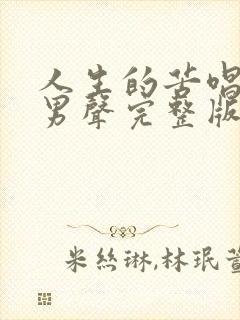 人生的苦唱
男聲完整版
米絲琳,林珉萱